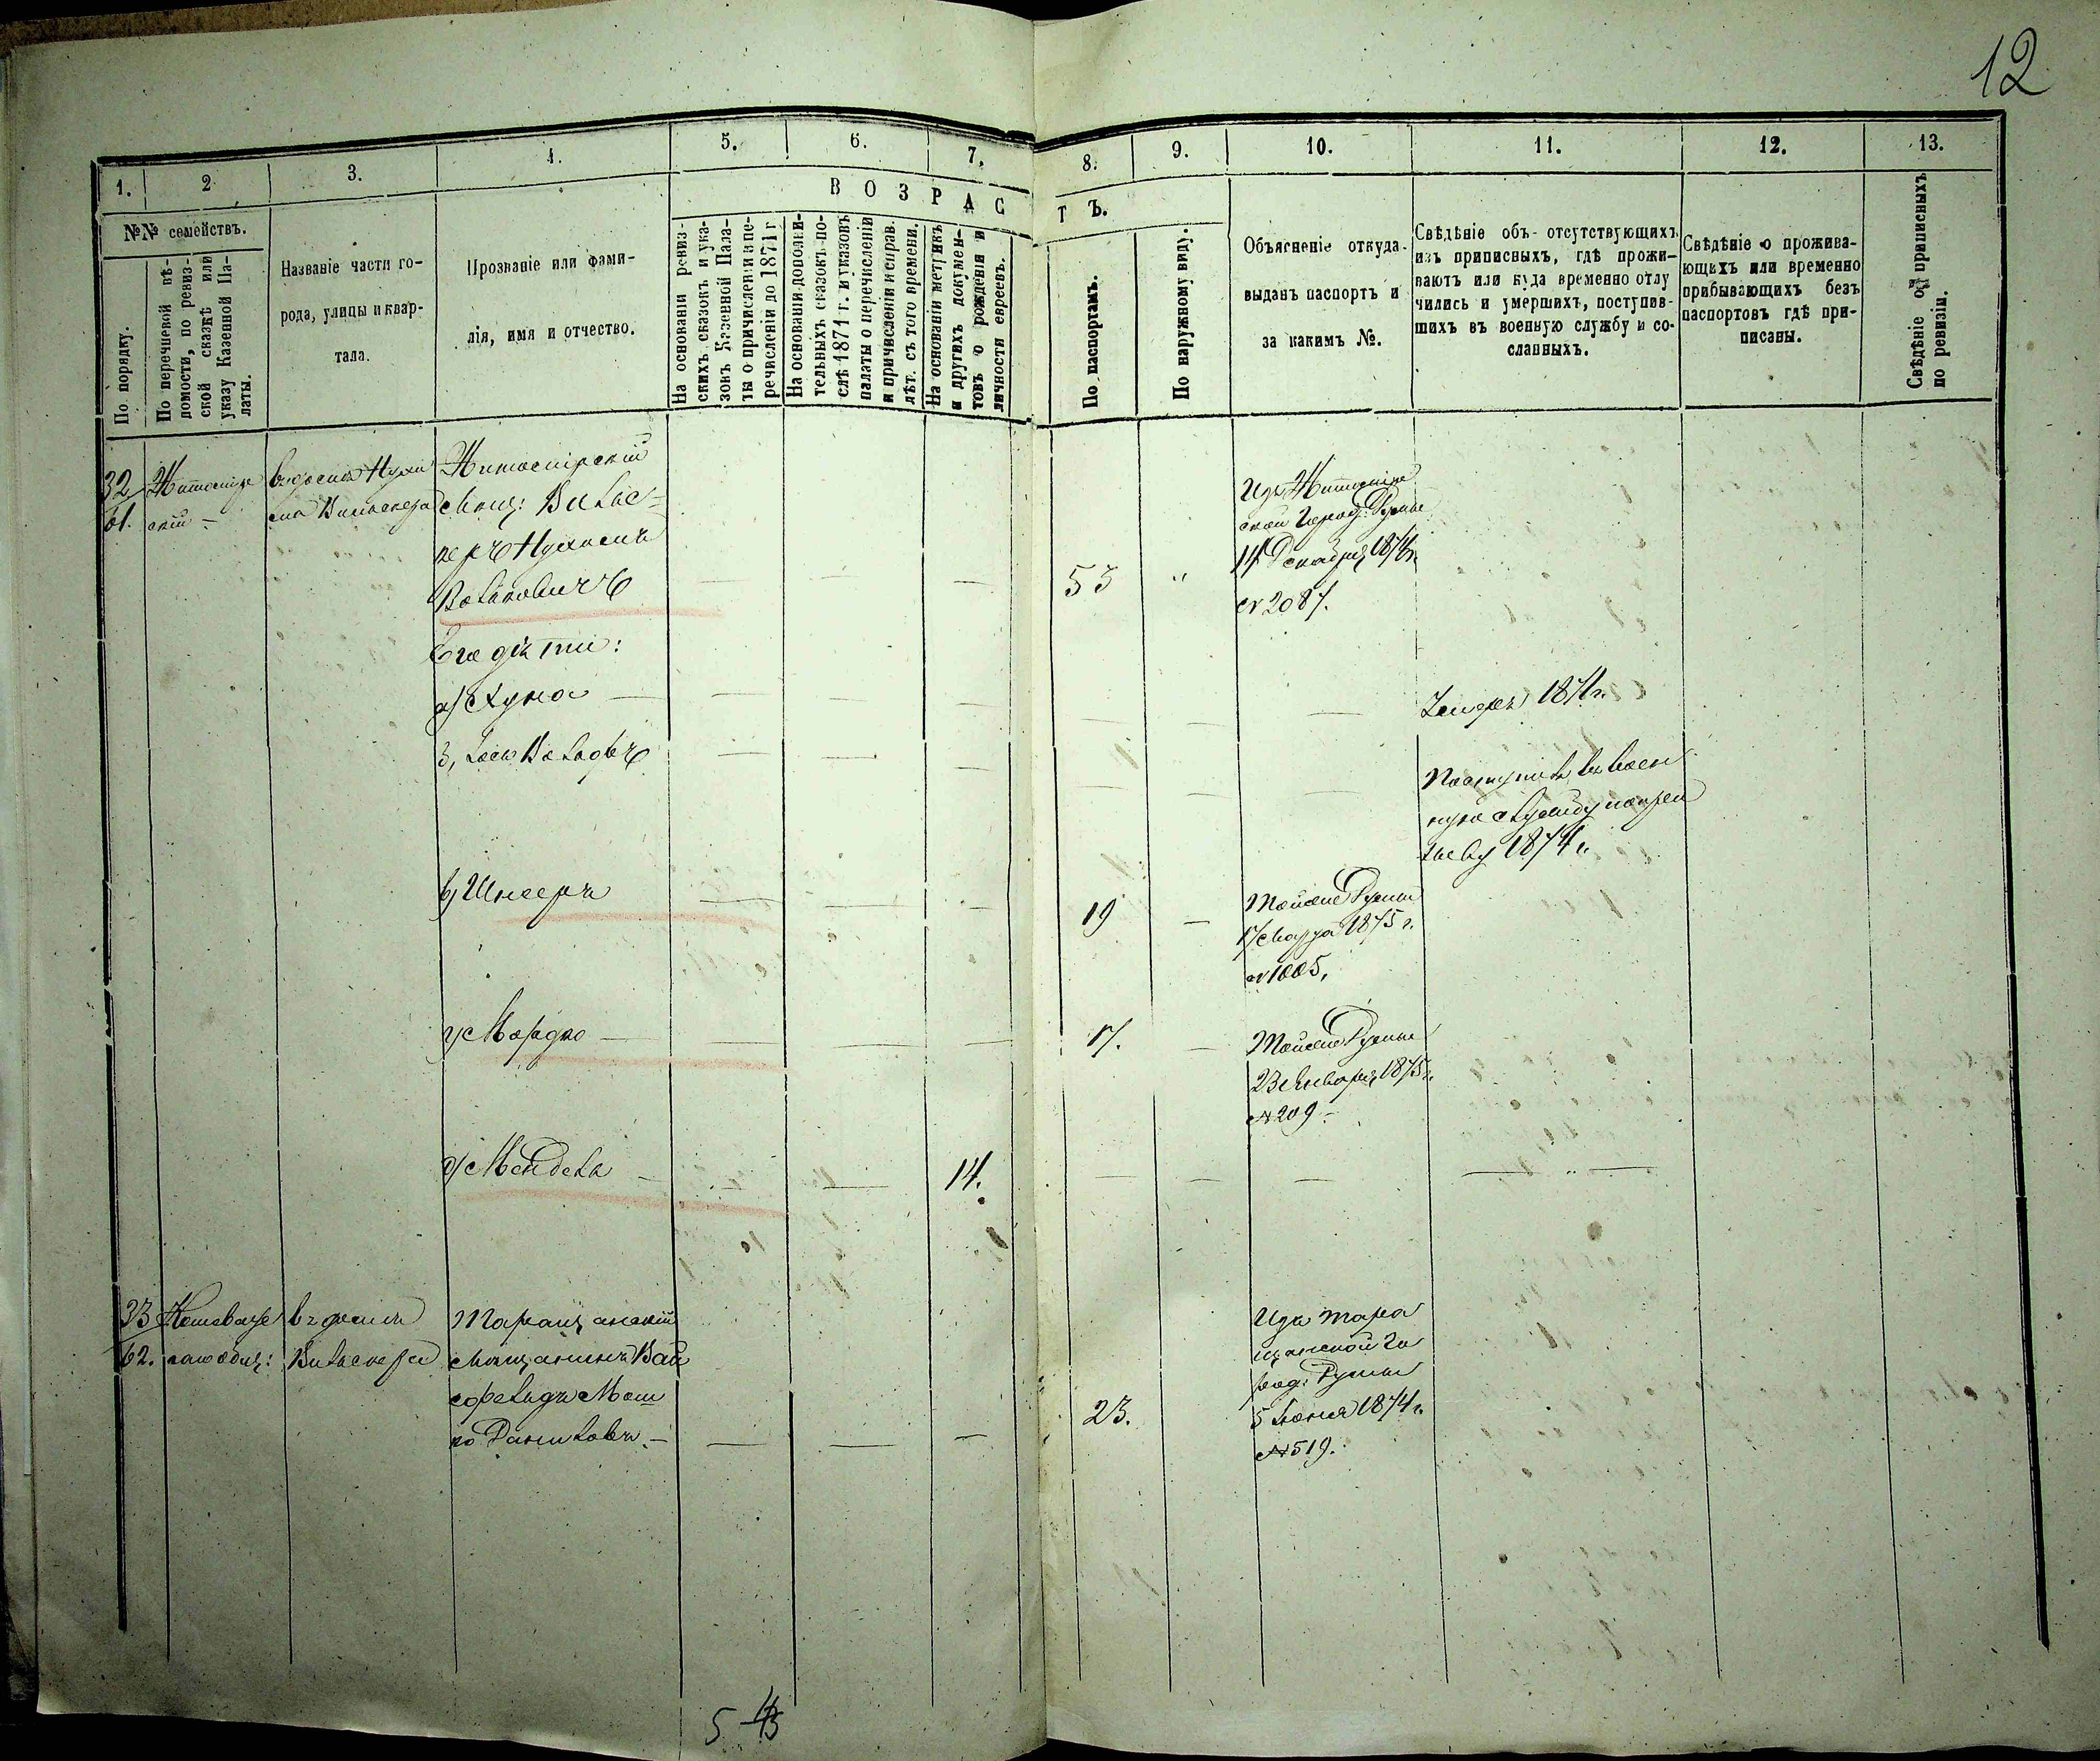 12
1.
2
3.
4.
5.
6.
7.
8.
9.
10.
11.
12.
13.
№№ семействъ.
По порядку.
По перечневой вѣ-
домости, по ревиз-
ской сказкѣ или
указу Казенной Па-
латы.
Названіе части го-
рода, улицы и квар-
тала.
Прозваніе или фами-
лія, имя и отчество.
ВОЗРАСТЪ.
На основаніи ревиз-
скихъ сказокъ и ука-
зовъ Казенной Пала-
ты о причисленіи и пе-
речисленіи до 1871 г.
На основаніи дополни-
тельныхъ сказокъ по-
слѣ 1871 г. и указовъ
палаты о перечисленіи
и причисленіи и справ.
лѣт. съ того времени.
На основаніи метрикъ
и другихъ докумен-
товъ о рожденіи и
личности евреевъ.
По паспортамъ.
По наружному виду.
Объясненіе откуда
выданъ паспортъ и
за какимъ №.
Свѣдѣніе объ отсутствующихъ
изъ приписныхъ, гдѣ прожи-
ваютъ или куда временно отлу
чились и умершихъ, поступив-
шихъ въ военную службу и со-
сланныхъ.
Свѣдѣніе о прожива-
ющихъ или временно
прибывающихъ безъ
паспортовъ гдѣ при-
писаны.
Свѣдѣніе о приписныхъ
по ревизіи.
32/61.
Житомір
скій -
въ домѣ Нухи
ма Вильскера
Житомірскій
мѣщ: Вильс=
керъ Нухимъ
Вольковичъ
53
"
Изъ Житомір
ской Город: Думы
11 Декабря 1874 г.
№ 2087.
Его дѣти:
а,
Умеръ 1871 г.
б,
Поступилъ въ воен
ную службу по
1874 г.
в,
19
Тойже Думы
17 Марта 1875 г.
№ 1005,
г, Мордко
17.
Тойже Думы
23 Января 1875 г.
№ 209 -
д, Мендель
14.
33/62.
въ домѣ
Вильскера
Таращанскій
мѣщанинъ Вай
Мош
ко Даниловъ -
23.
Изъ Тара
щанской Го
род: Думы
5 Іюня 1874 г.
№ 519.
5